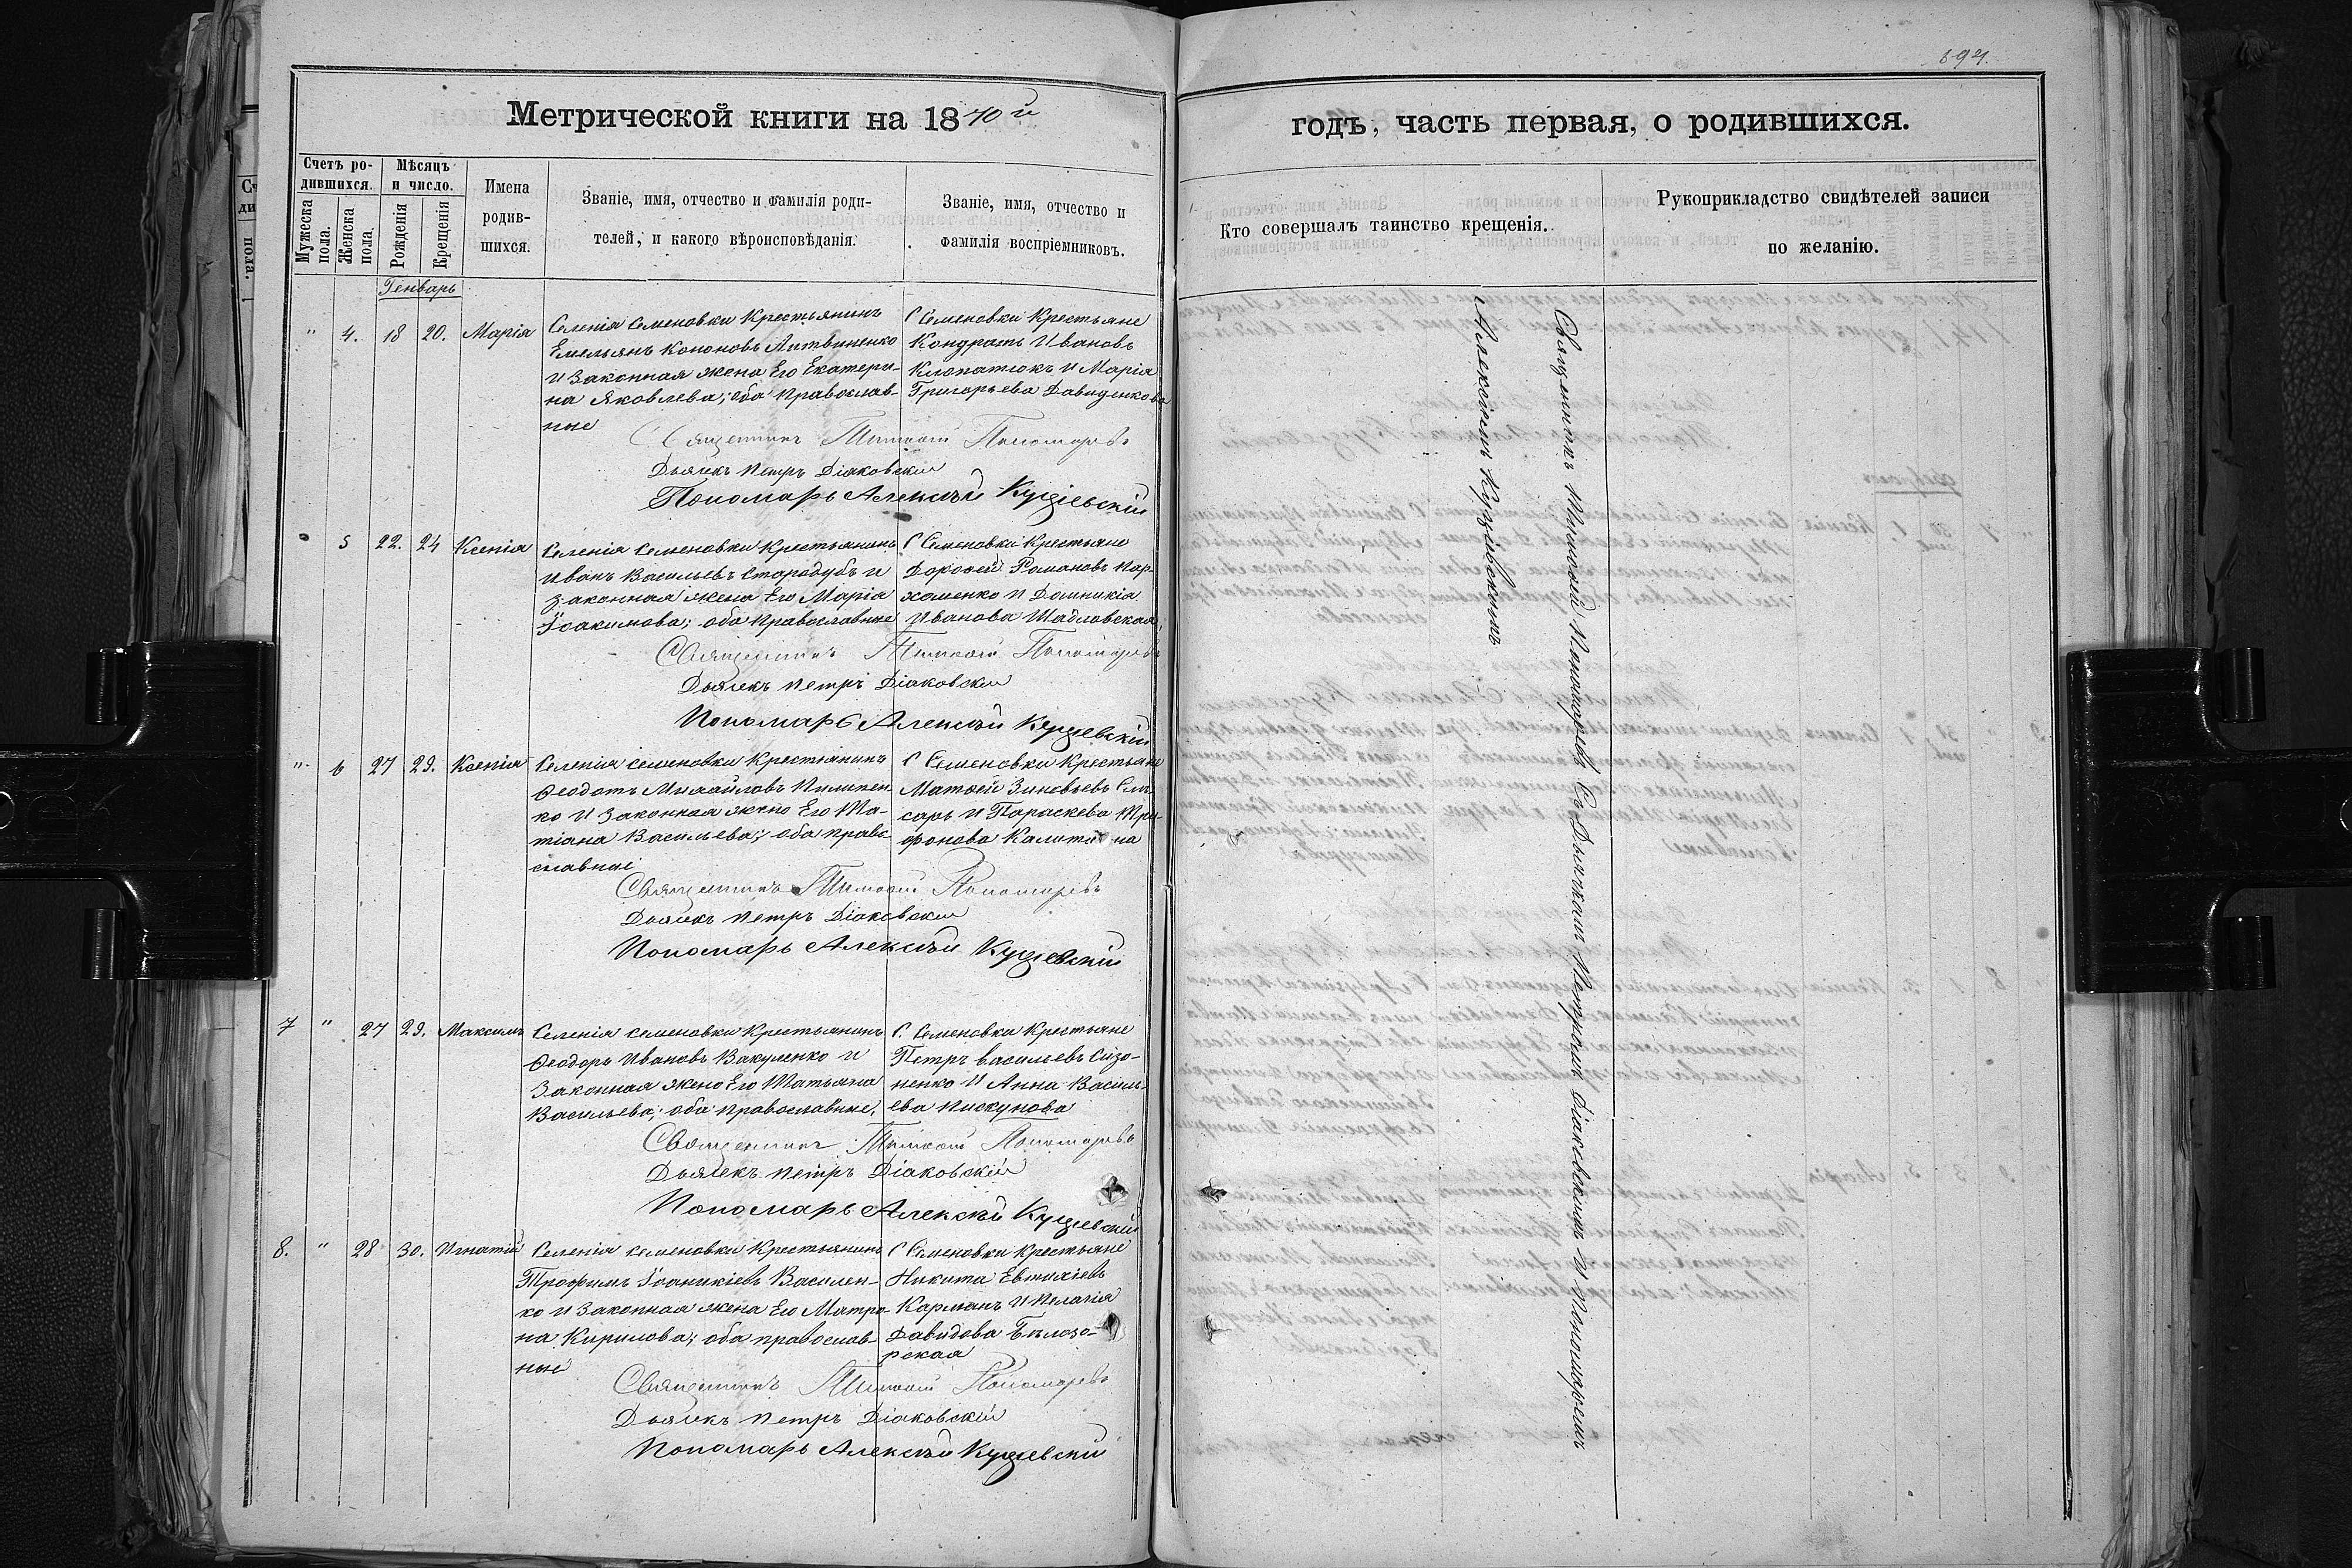 Метрической книги на 1870й
Счетъ родившихся.
Мужеска пола.
Женска пола.
Мѣсяцъ и число.
Рожденія
Крещенія
Имена родившихся.
Званіе, имя, отчество и фамилія родителей, и какого вѣроисповѣданія.
Званіе, имя, отчество и фамилія воспріемниковъ.
Генварь
" 4. 18 20. Марія
Селенія Семеновки Крестьянинъ
Емельянъ Кононовъ Литвиненко
и Законная жена Его Екатери-
на Яковлева; оба православ-
ные
С Семеновки Крестьяне
Кондратъ Ивановъ
Клопатюкъ и Марія
Григорьева Давиденкова
Священникъ Тимофей Пономаревъ
Дьячекъ Петръ Діаковскій
Пономарь Алексѣй
5 22. 24 Ксенія
Селенія Семеновки Крестьянинъ
Иванъ Васильевъ Стародубъ и
Законная жена Его Марія
Іоакимова; оба православные
С Семеновки Крестьяне
Дорофей Романовъ Пар-
хоменко и Домникія
Иванова Шабловская
Священникъ Тимофей Пономаревъ
Дьячекъ Петръ Діаковскій
Пономарь Алексѣй
" 6 27 29. Ксенія
Селенія Семеновки Крестьянинъ
Феодотъ Михайловъ Пилипен-
ко и Законная жена Его Та-
тіана Васильева; оба право-
славные
С Семеновки Крестьяне
Матфей Зиновьевъ Сле-
сарь и Параскева Три-
фонова
Священникъ Тимофей Пономаревъ
Дьячекъ Петръ Діаковскій
Пономарь Алексѣй
7 " 27 29. Максимъ
Селенія Семеновки Крестьянинъ
Феодоръ Ивановъ Вакуленко и
Законная жена Его Татьяна
Васильева; оба православные,
С Семеновки Крестьяне
Петръ Васильевъ Сизо-
ненко и Анна Василь-
ева Пискунова
Священникъ Тимофей Пономаревъ
Дьячекъ Петръ Діаковскій
Пономарь Алексѣй
8. " 28 30. Игнатій
Селенія Семеновки Крестьянинъ
Трофимъ Іоаникіевъ Василен-
ко и Законная жена Его Матро-
на Кирилова; оба православ-
ные
С Семеновки Крестьяне
Никита Евтихіевъ
Карманъ и Пелагія
Давидова Бѣлозо-
рская
Священникъ Тимофей Пономаревъ
Дьячекъ Петръ Діаковскій
Пономарь Алексѣй
годъ, часть первая, о родившихся.
Кто совершалъ таинство крещенія.
Рукоприкладство свидѣтелей записи
по желанію.
Священникъ Тимофей Пономаревъ Съ Дьячкомъ Петромъ Діаковскимъ и Пономаремъ
Алексѣемъ